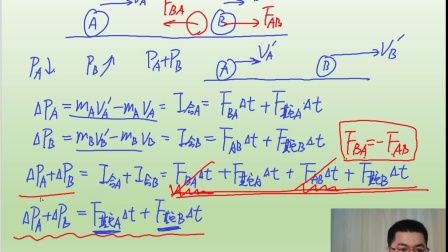 A V_A F_BA B F_AB
P_A↓ P_B↗ P_A+P_B A V_A′ B V_B′
ΔP_A = m_A V_A′ − m_A V_A = I_合A = F_BA Δt + F_其它A Δt
ΔP_B = m_B V_B′ − m_B V_B = I_合B = F_AB Δt + F_其它B Δt
F_BA = −F_AB
ΔP_A+ΔP_B = I_合A + I_合B = F_BA Δt + F_其它A Δt + F_AB Δt + F_其它B Δt
ΔP_A+ΔP_B = F_其它A Δt + F_其它B Δt